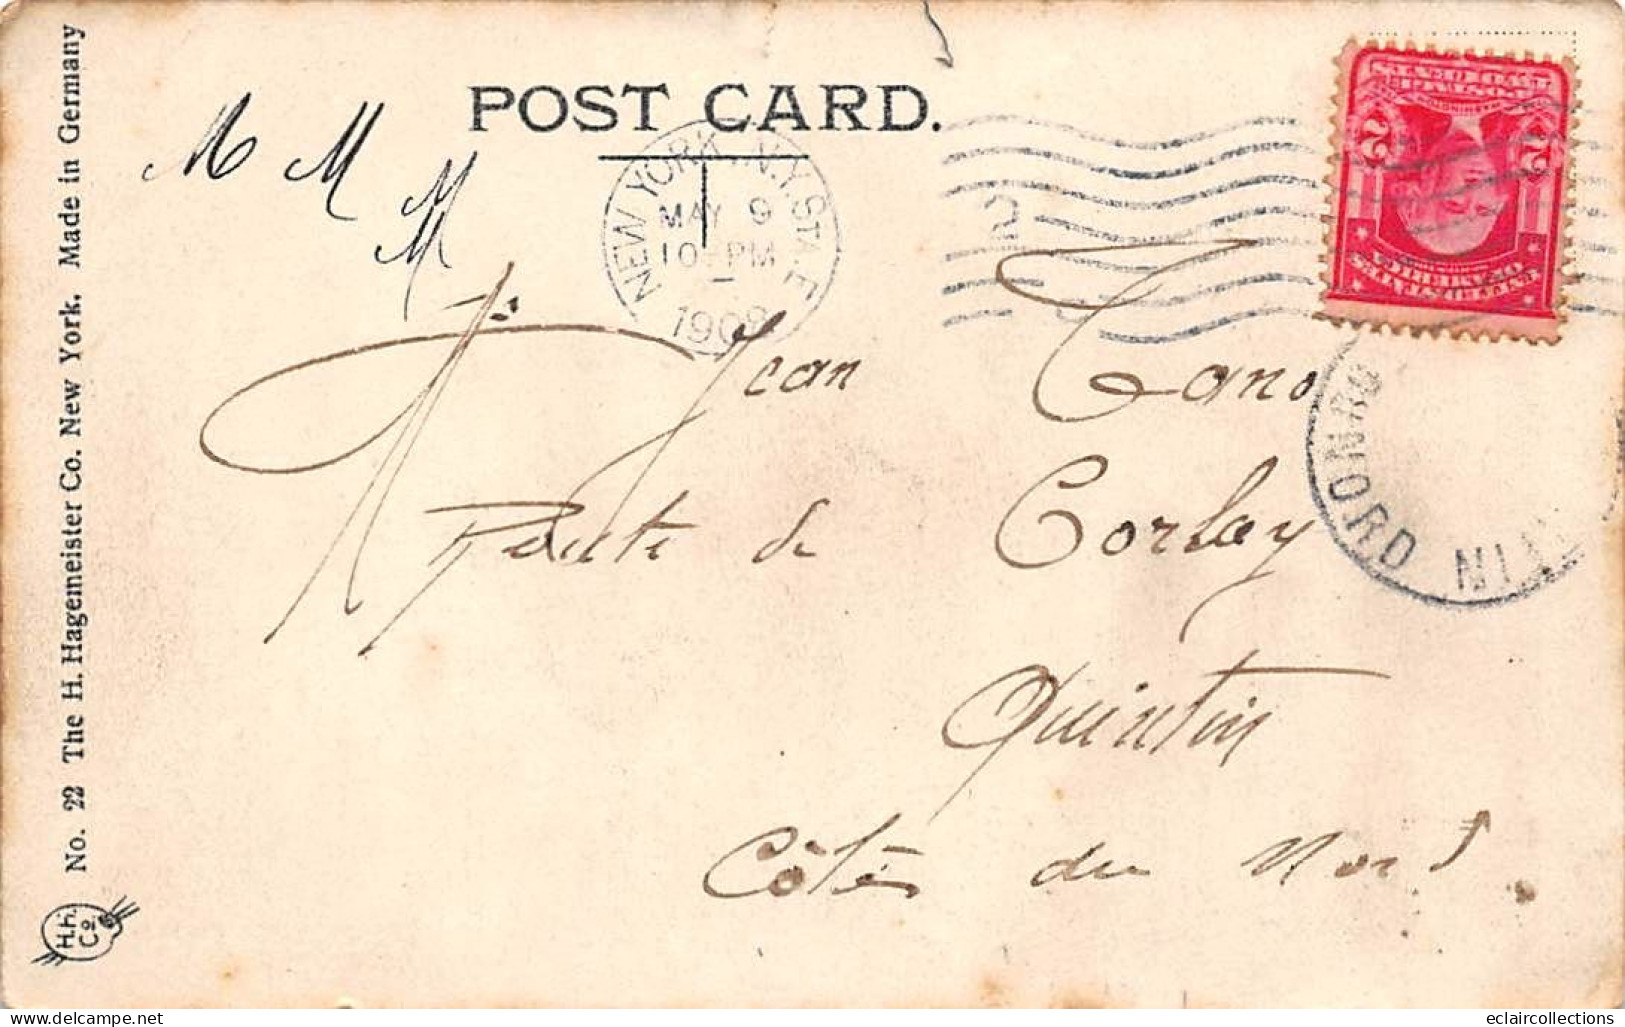 POST CARD.
M M M
NEW YORK, N.Y. STA. F
MAY 9
10-PM
1908
2
Mr Jean Cano
Route de Corlay
Quintin
Côtes du Nord
No. 22 The H. Hagemeister Co. New York. Made in Germany
H.H.
Co
UNITED STATES
OF AMERICA
2 2
TWO CENTS
QUINTIN
DU NORD
eclaircollections